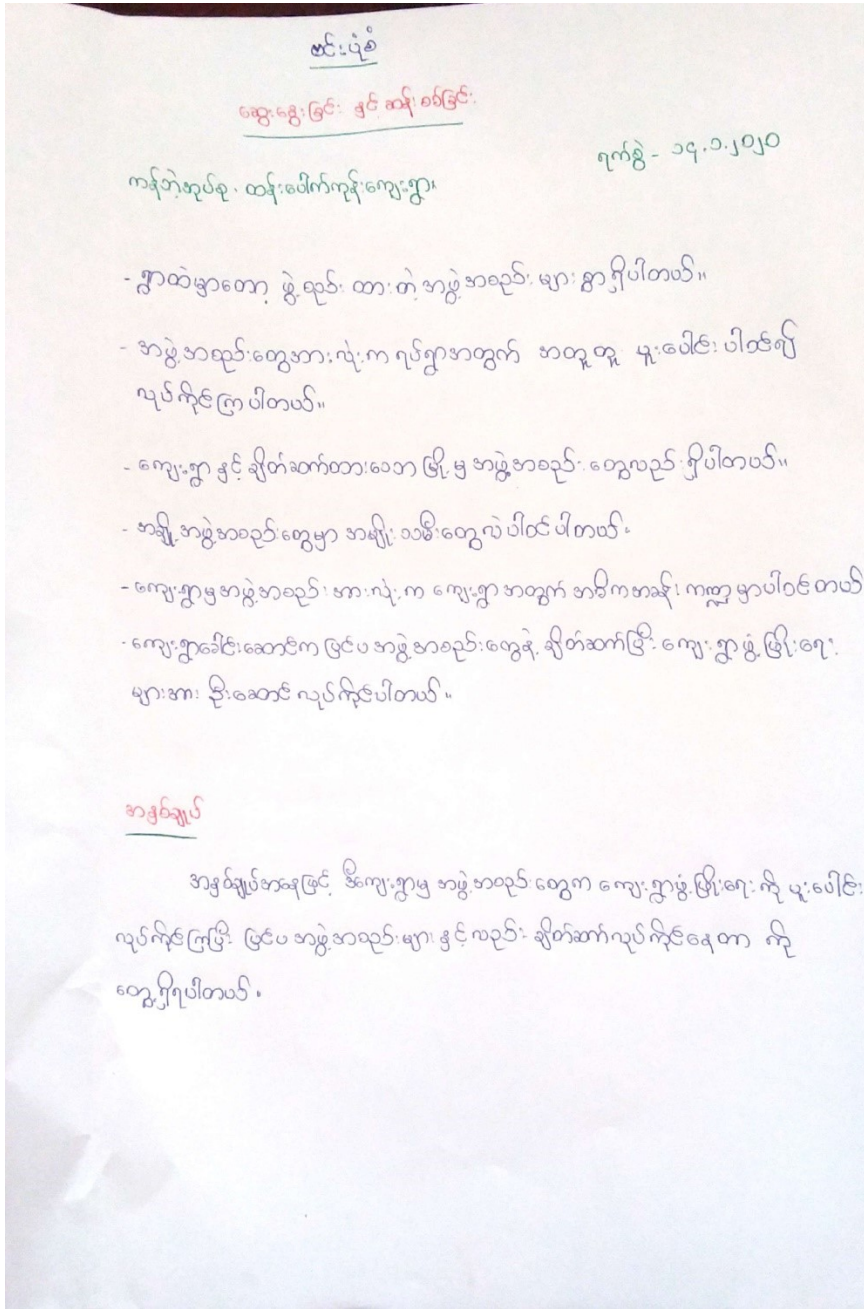 ဗင်းပုံစံ
ဆွေးနွေးခြင်း နှင့် ဆန်းစစ်ခြင်း
ရက်စွဲ - ၁၄.၁.၂၀၂၀
ကန်ဘဲ့အုပ်စု၊ ထန်းပေါက်ကုန်းကျေးရွာ၊
- ရွာထဲမှာတော့ ဖွဲ့စည်း ထားတဲ့ အဖွဲ့အစည်း များစွာရှိပါတယ်။
- အဖွဲ့အစည်းတွေအားလုံးက ရပ်ရွာအတွက် အတူတူ ပူးပေါင်း ပါဝင်၍
လုပ်ကိုင်ကြပါတယ်။
- ကျေးရွာ နှင့် ချိတ်ဆက်ထားသော မြို့မှ အဖွဲ့အစည်းတွေလည်း ရှိပါတယ်။
- အချို့အဖွဲ့အစည်းတွေမှာ အမျိုးသမီးတွေလဲပါဝင်ပါတယ်။
- ကျေးရွာမှအဖွဲ့အစည်းအားလုံးက ကျေးရွာအတွက် အဓိကအခန်းကဏ္ဍမှာပါဝင်တယ်
- ကျေးရွာခေါင်းဆောင်က ပြင်ပအဖွဲ့အစည်းတွေနဲ့ ချိတ်ဆက်ပြီး ကျေးရွာဖွံ့ဖြိုးရေး
များအား ဦးဆောင် လုပ်ကိုင်ပါတယ်။
အနှစ်ချုပ်
အနှစ်ချုပ်အနေဖြင့် ဒီကျေးရွာမှ အဖွဲ့အစည်းတွေက ကျေးရွာဖွံ့ဖြိုးရေး ကို ပူးပေါင်း
လုပ်ကိုင်ကြပြီး ပြင်ပ အဖွဲ့အစည်းများ နှင့်လည်း ချိတ်ဆက်လုပ်ကိုင်နေတာ ကို
တွေ့ရှိရပါတယ်။